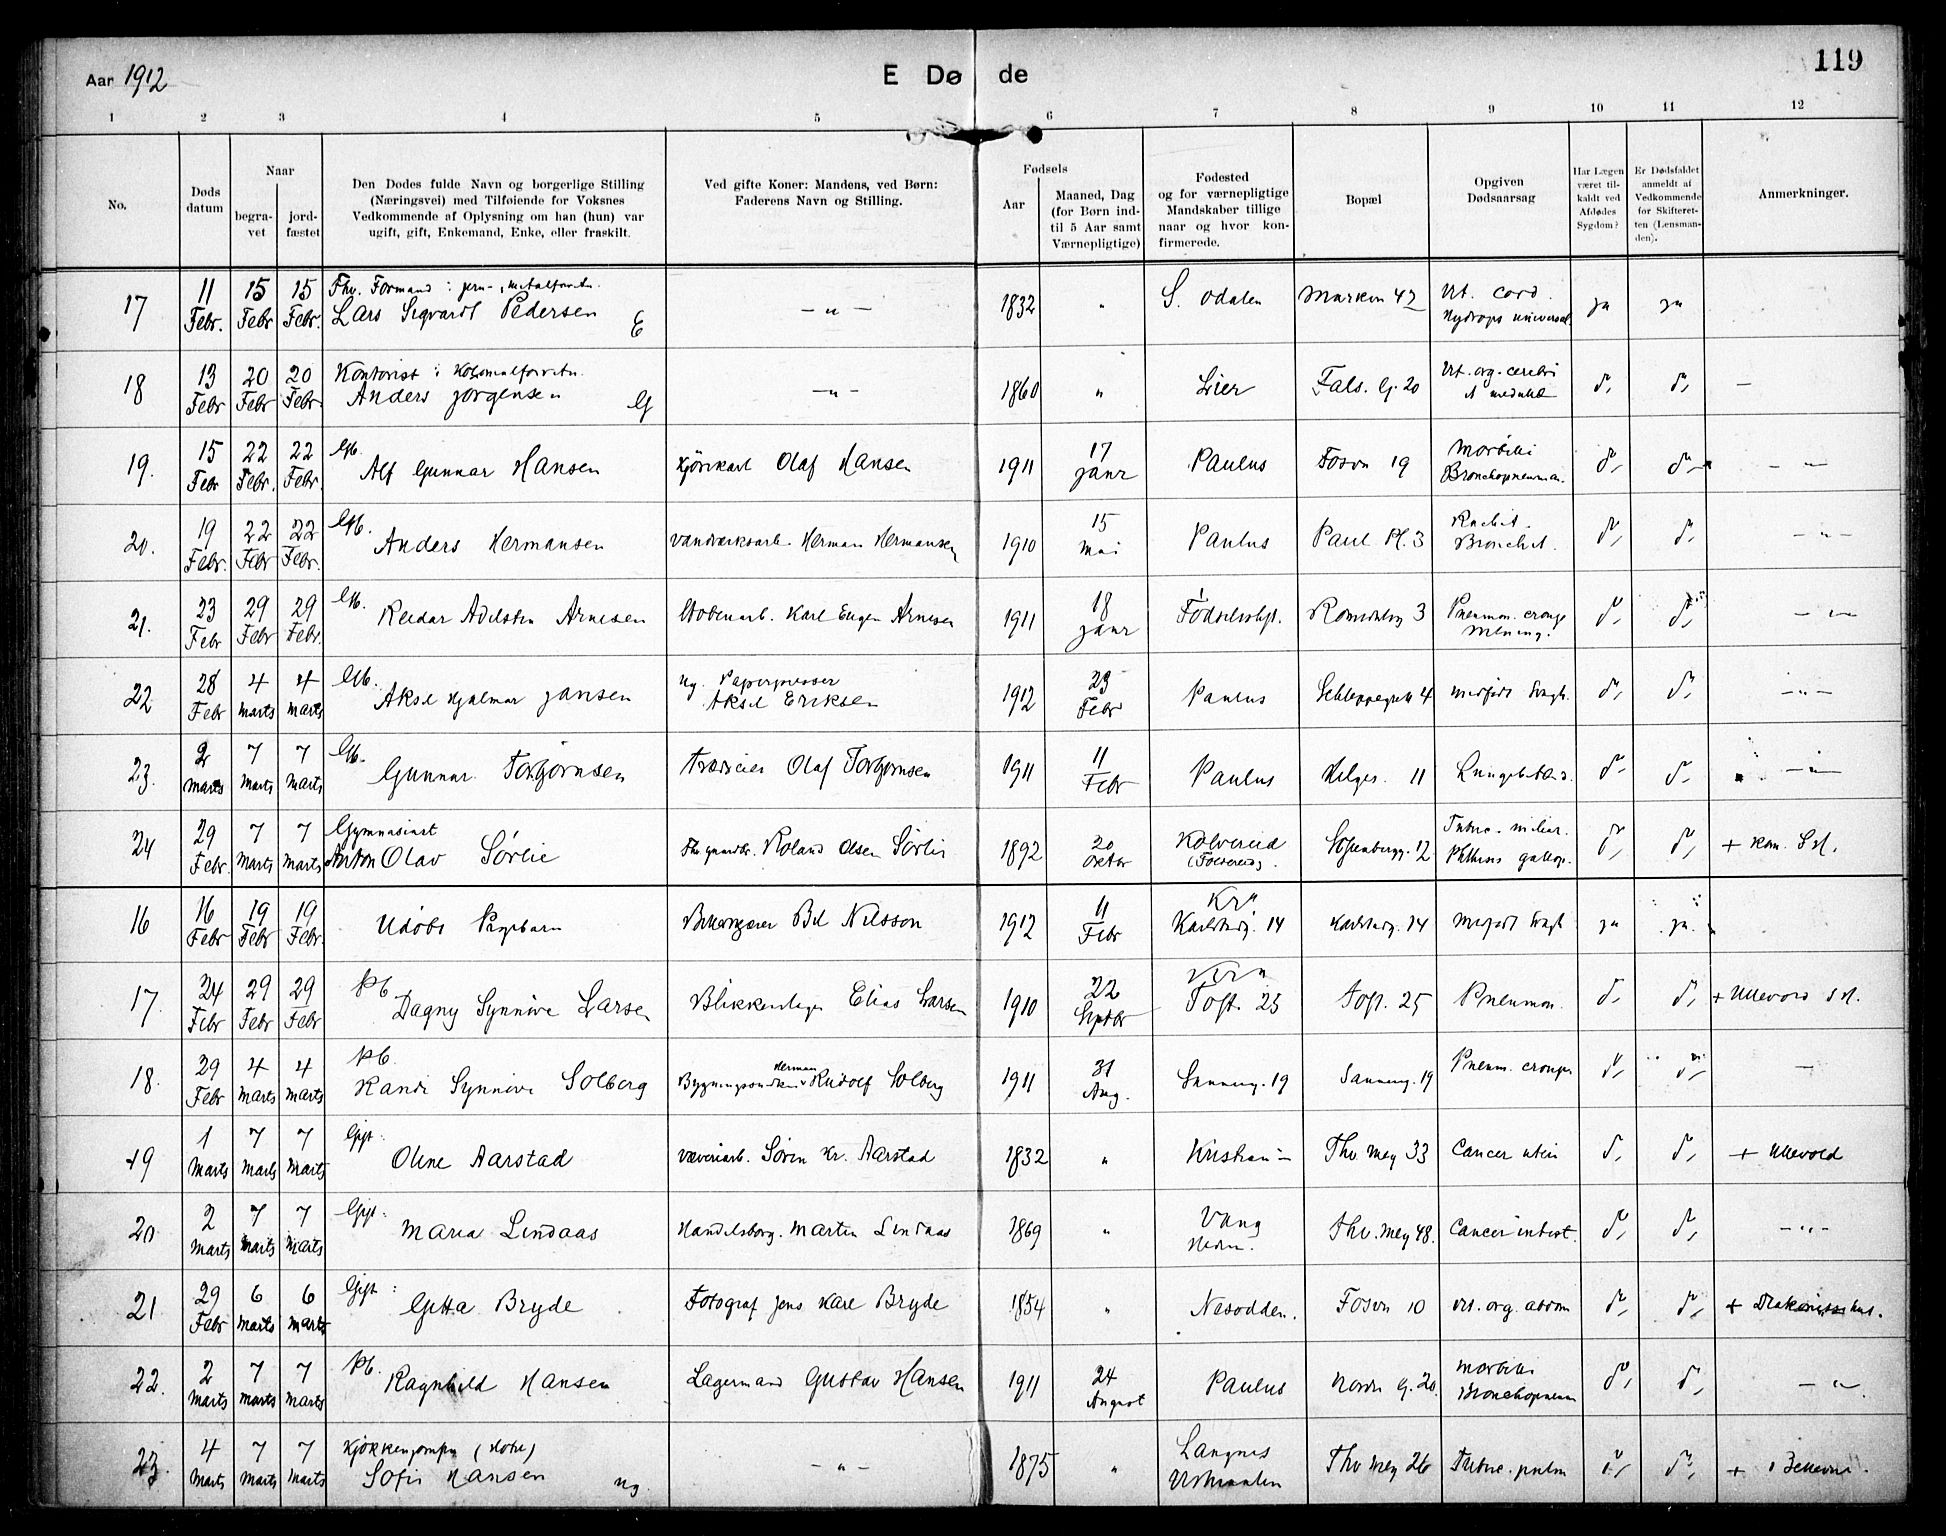 Aar 1912
E Døde
119
1 2 3 4 5 6 7 8 9 10 11 12
No.
Døds datum
Naar
begravet
jordfæstet
Den Dødes fulde Navn og borgerlige Stilling
(Næringsvei) med Tilføiende for Voksnes
Vedkommende af Oplysning om han (hun) var
ugift, gift, Enkemand, Enke, eller fraskilt.
Ved gifte Koner: Mandens, ved Børn:
Faderens Navn og Stilling.
Fødsels
Aar
Maaned, Dag
(for Børn ind-
til 5 Aar samt
Værnepligtige)
Fødested
og for værnepligtige
Mandskaber tillige
naar og hvor kon-
firmerede.
Bopæl
Opgiven
Dødsaarsag
Har Lægen
været til-
kaldt ved
Afdødes
Sygdom?
Er Dødsfaldet
anmeldt af
Vedkommende
for Skifteret-
ten (Lensman-
den).
Anmerkninger.
17 11 Febr. 15 Febr 15 Febr. Fhv. Formand i jern-
Lars Sigvardt Pedersen E — " — 1832 " S. Odalen Markvn 42 Vit. cord. Hydrops universal. ja ja
18 13 Febr 20 Febr 20 Febr. Kontorist i
Anders Jørgensen G — " — 1860 " Lier Fals. G. 20 Vit. org. cerebri d° d° —
19. 15 Febr 22 Febr. 22 Febr. Gb. Alf Gunnar Hansen Kjørekarl Olaf Hansen 1911 17 Janr Paulus Fosvn 19 Morbilli Bronchopneumon. d° d° — " —
20. 19 Febr. 22 Febr 22 Febr. Gb. Anders Hermansen Vandværksarb. Herman Hermansen 1910 15 Mai Paulus Paul. Pl. 3 Rachit. Bronchit. d° d° — " —
21. 23 Febr 29 Febr 29 Febr. Gb. Reidar Adelsten Arnesen Karl Eugen Arnesen 1911 18 Janr Fødselsstift. 3 Pneumon. croup Mening. d° d° — " —
22 28 Febr 4 Marts 4 Marts Gb. Aksel Hjalmar Jansen ug. Paperpresser Aksel Eriksen 1912 23 Febr Paulus Schleppegrels 4 medfødt Svagh. d° d° — " —
23. 2 Marts 7 Marts 7 Marts Gb. Gunnar Torbjørnsen Olaf Torbjørnsen 1911 11 Febr Paulus Helges. 11 d° d° — " —
24 29 Febr. 7 Marts 7 Marts Gymnasiast Anton Olav Sørlie Roland Olsen Sørlie 1892 20 Oktbr Kolvereid (Foldereid). Sofienbergg. 12 Tuberc. miliar. Phthisis galop. d° d° + Kom. Sh.
16 16 Febr 19 Febr 19 Febr. Udøbt Pigebarn Nilsson 1912 11 Febr Kra Karlsborg. 14 Karlsborg. 14 Medfødt Svagh ja ja
17. 24 Febr 29 Febr 29 Febr Pb. Dagny Synnøve Larsen Blikkenslager Elias Larsen 1910 22 Septbr Kra Toft. 25 Toft. 25 Pneumon. d° d° + Ullevold Sh.
18. 29 Febr 4 Marts 4 Marts Pb. Randi Synnøve Solberg Bygningssnedker Herman Rudolf Solberg 1911 31 Aug. Sannerg. 19 Sannerg. 19 Pneum. croupos d° d° —
19 1 Marts 7 Marts 7 Marts Gift: Oline Aarstad Væveriarb. Søren Kr. Aarstad 1832 " Kristian— Thv Mey 33 Cancer uteri d° d° + Ullevold
20 2 Marts 7 Marts 7 Marts Gift: Maria Lindaas Handelsborg. Martin Lindaas 1869 " Vang Hedm. Thv. Mey 48. Cancer intest. d° d° — " —
21 29 Febr 6 Marts 6 Marts Gift: Gitta Bryde Fotograf Jens Karl Bryde 1854 " Nesodden. Fosvn 10 Vit. org. abdom d° d° + Diakonissehus.
22. 2 Marts 7 Marts 7 Marts Pb. Ragnhild Hansen Lagermand Gustav Hansen 1911 24 August Paulus Nordre G. 20. Morbilli Bronchopneum d° d° — " —
23. 4 Marts 7 Marts 7 Marts Kjøkkenjomfru (Hotel)
Sofie Hansen ug. — " — 1875 " Langnes Thv Mey 26 Tuberc. pulm d° d° +